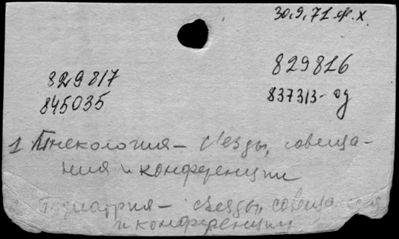 30.9.71 ф.х.
829817 829826
845035 837313-од
1 Гинекология - съезды, совеща-
ния и конференции
2 Педиатрия - съезды, совещания
и конференции